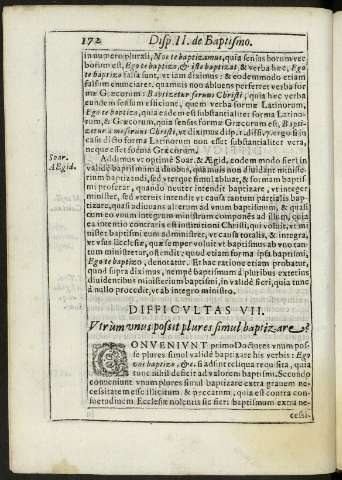 172 Disp. II. de Baptismo.
in numero plurali, Nos te baptizamus, quia sensus horum verborum
est, Ego te baptizo, & iste baptizat, & verba hæc, Ego
te baptizo falsa sunt, vt iam diximus: & eodem modo etiam
falsum enunciaret, quamuis non ablueus perferret verba formæ
Græcorum: Baptizetur seruus Christi, quia hæc verba
eundem sensum efficiunt, quem verba formæ Latinorum,
Ego te baptizo, quia eadem est substantialiter forma Latinorum,
& Græcorum, quia sensus formæ Græcorum est, Baptizetur
à me seruus Christi, vt diximus disp. 1. diff. 7. ergo si in
casu dicto forma Latinorum non esset substantialiter vera,
neque esset forma Græcorum.
Soar.
AEgid.
Addimus vt optimè Soar. & Ægid. eodem modo fieri in
valide baptismum à duobus, quamuis non diuidant ministerium
baptizandi, sed vterque simul abluat, & formam baptismi
proferat, quando neuter intendit baptizare, vt integer
minister, sed vterque intendit vt causa tantum partialis baptizare,
quasi adiuuans alterum ad vnum baptismum, & quasi
cum eo vnum integrum ministrum componens ad illum, quia
ea intentio contraria est institutioni Christi, qui voluit, vt minister
baptismi eum administraret, vt causa totalis, & integra,
vt vsus Ecclesiæ, quæ semper voluit vt baptismus ab vno tantum
ministretur, ostendit; quod etiam forma ipsa baptismi,
Ego te baptizo, denotatur. Et hac ratione etiam probatur,
quod supra diximus, nempè baptismum à pluribus exterius
diuidentibus ministerium baptismi, inualidè fieri, quia tunc
à nullo procedit, vt ab integro ministro.
DIFFICVLTAS VII.
Vtrum vnus possit plures simul baptizare?
CONVENIVNT primo Doctores vnum posse
plures simul validè baptizare his verbis: Ego
vos baptizo, &c. si adsint reliqua requisita, quia
tunc nihil deficit ad valorem baptismi. Secundo
conueniunt vnum plures simul baptizare extra grauem necessitatem
esse illicitum & peccatum, quia est contra consuetudinem
Ecclesiæ nolentis sic fieri baptismum extra necessi-